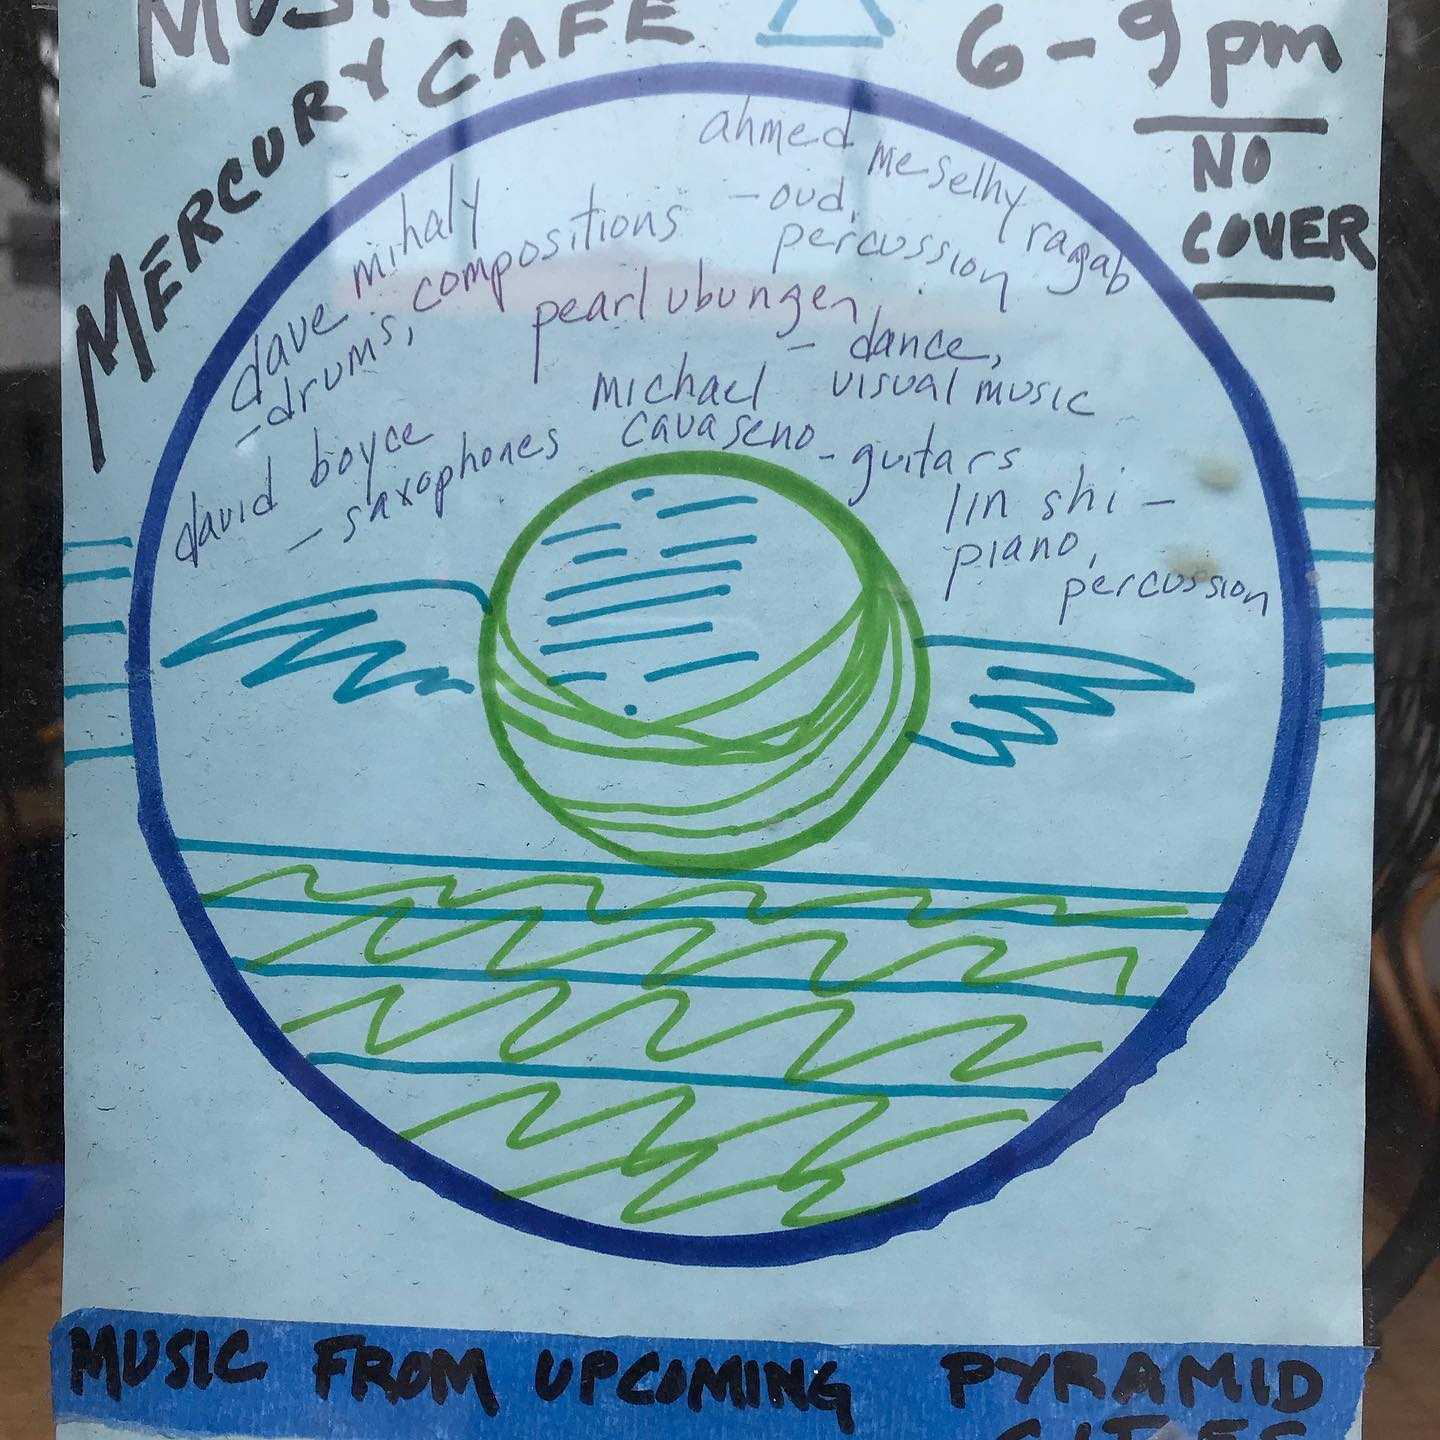 MUSIC
MERCURY CAFE
6-9pm
NO
COVER
ahmed meselhy ragab
- oud,
percussion
dave mihaly
- drums, compositions
pearl ubungen
- dance,
visual music
david boyce
- saxophones
michael
cavaseno - guitars
lin shi -
piano,
percussion
MUSIC FROM UPCOMING PYRAMID
CITIES